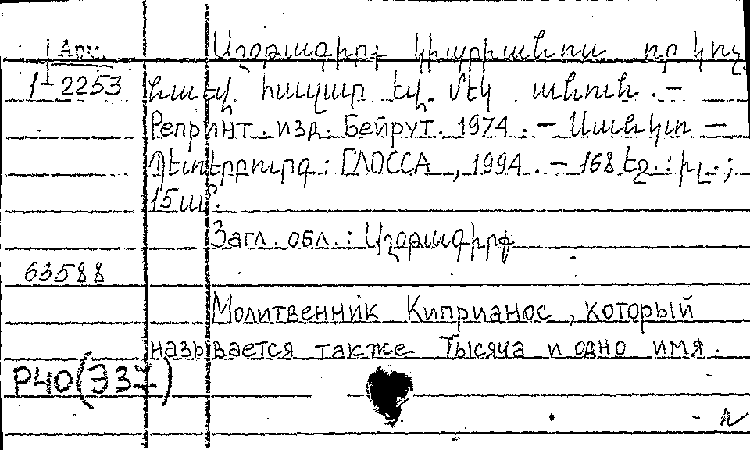 Арм. Աղօթագիրք կիպրիանոս որ կոչ
1-2253 նաեվ հազար եվ մեկ անուն. –
Репринт. изд. Бейрут. 1974. – Սանկտ –
Պետերբուրգ : ГЛОССА, 1994. – 168 էջ. : իլ. ;
15 սմ.
Загл. обл. : Աղօթագիրք
63588
Молитвенник Киприанос, который
называется также Тысяча и одно имя.
Р40(Э37)